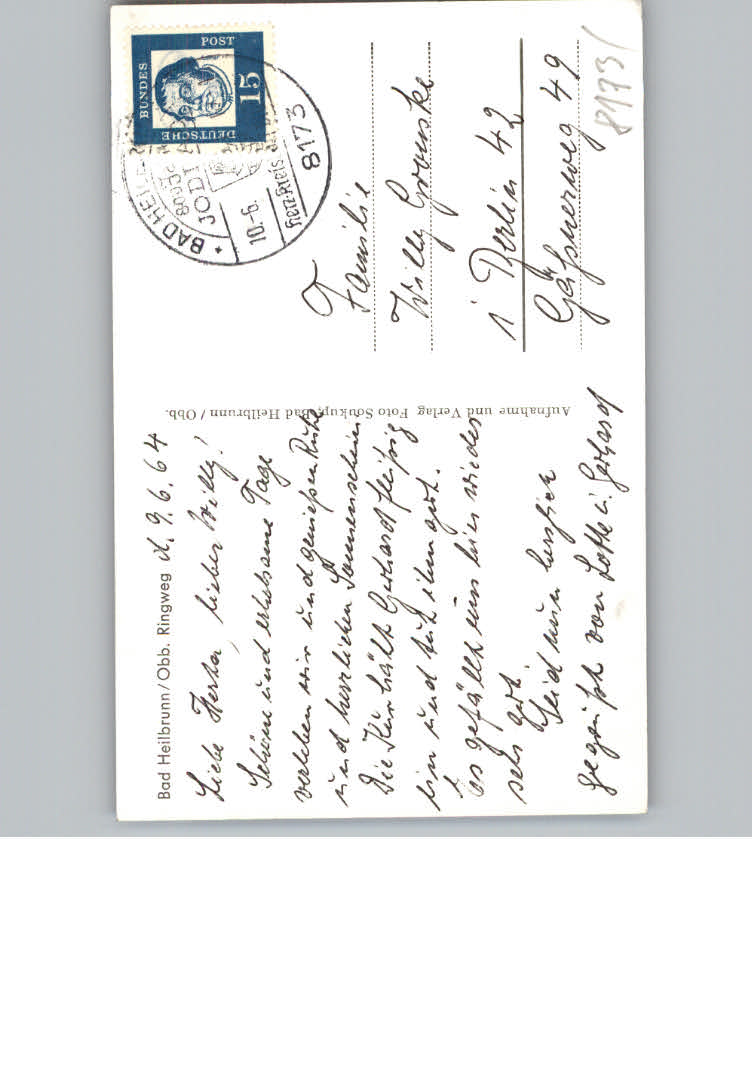 Bad Heilbrunn/Obb. Ringweg d. 9.6.64
Liebe Herta, lieber Willy!
Schöne und erholsame Tage
verleben wir und genießen Ruhe
und herrlichen Sonnenschein
Die Kur hält Gerhard fleißig
ein und tut ihm gut.
Es gefällt uns hier wieder
sehr gut.
Seid nun herzlich
gegrüßt von Lotte u. Gerhard
Aufnahme und Verlag Foto Soukup, Bad Heilbrunn / Obb.
DEUTSCHE BUNDES POST
15
BAD HEIL
JOD
10.-6.
Herz-Kreis
8173
Familie
Willy
1 Berlin 42
Gäßnerweg 49
8173/